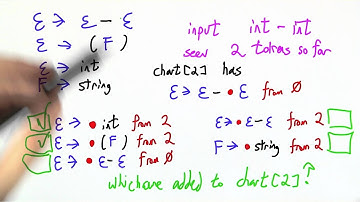 ε → ε - ε
ε → ( F )
ε → int
F → string
input int - int
seen 2 tokens so far
chart[2] has
ε → ε - • ε from 0
ε → • int from 2
ε → • (F) from 2
ε → • ε - ε from 0
ε → • ε - ε from 2
F → • string from 2
which are added to chart[2]?